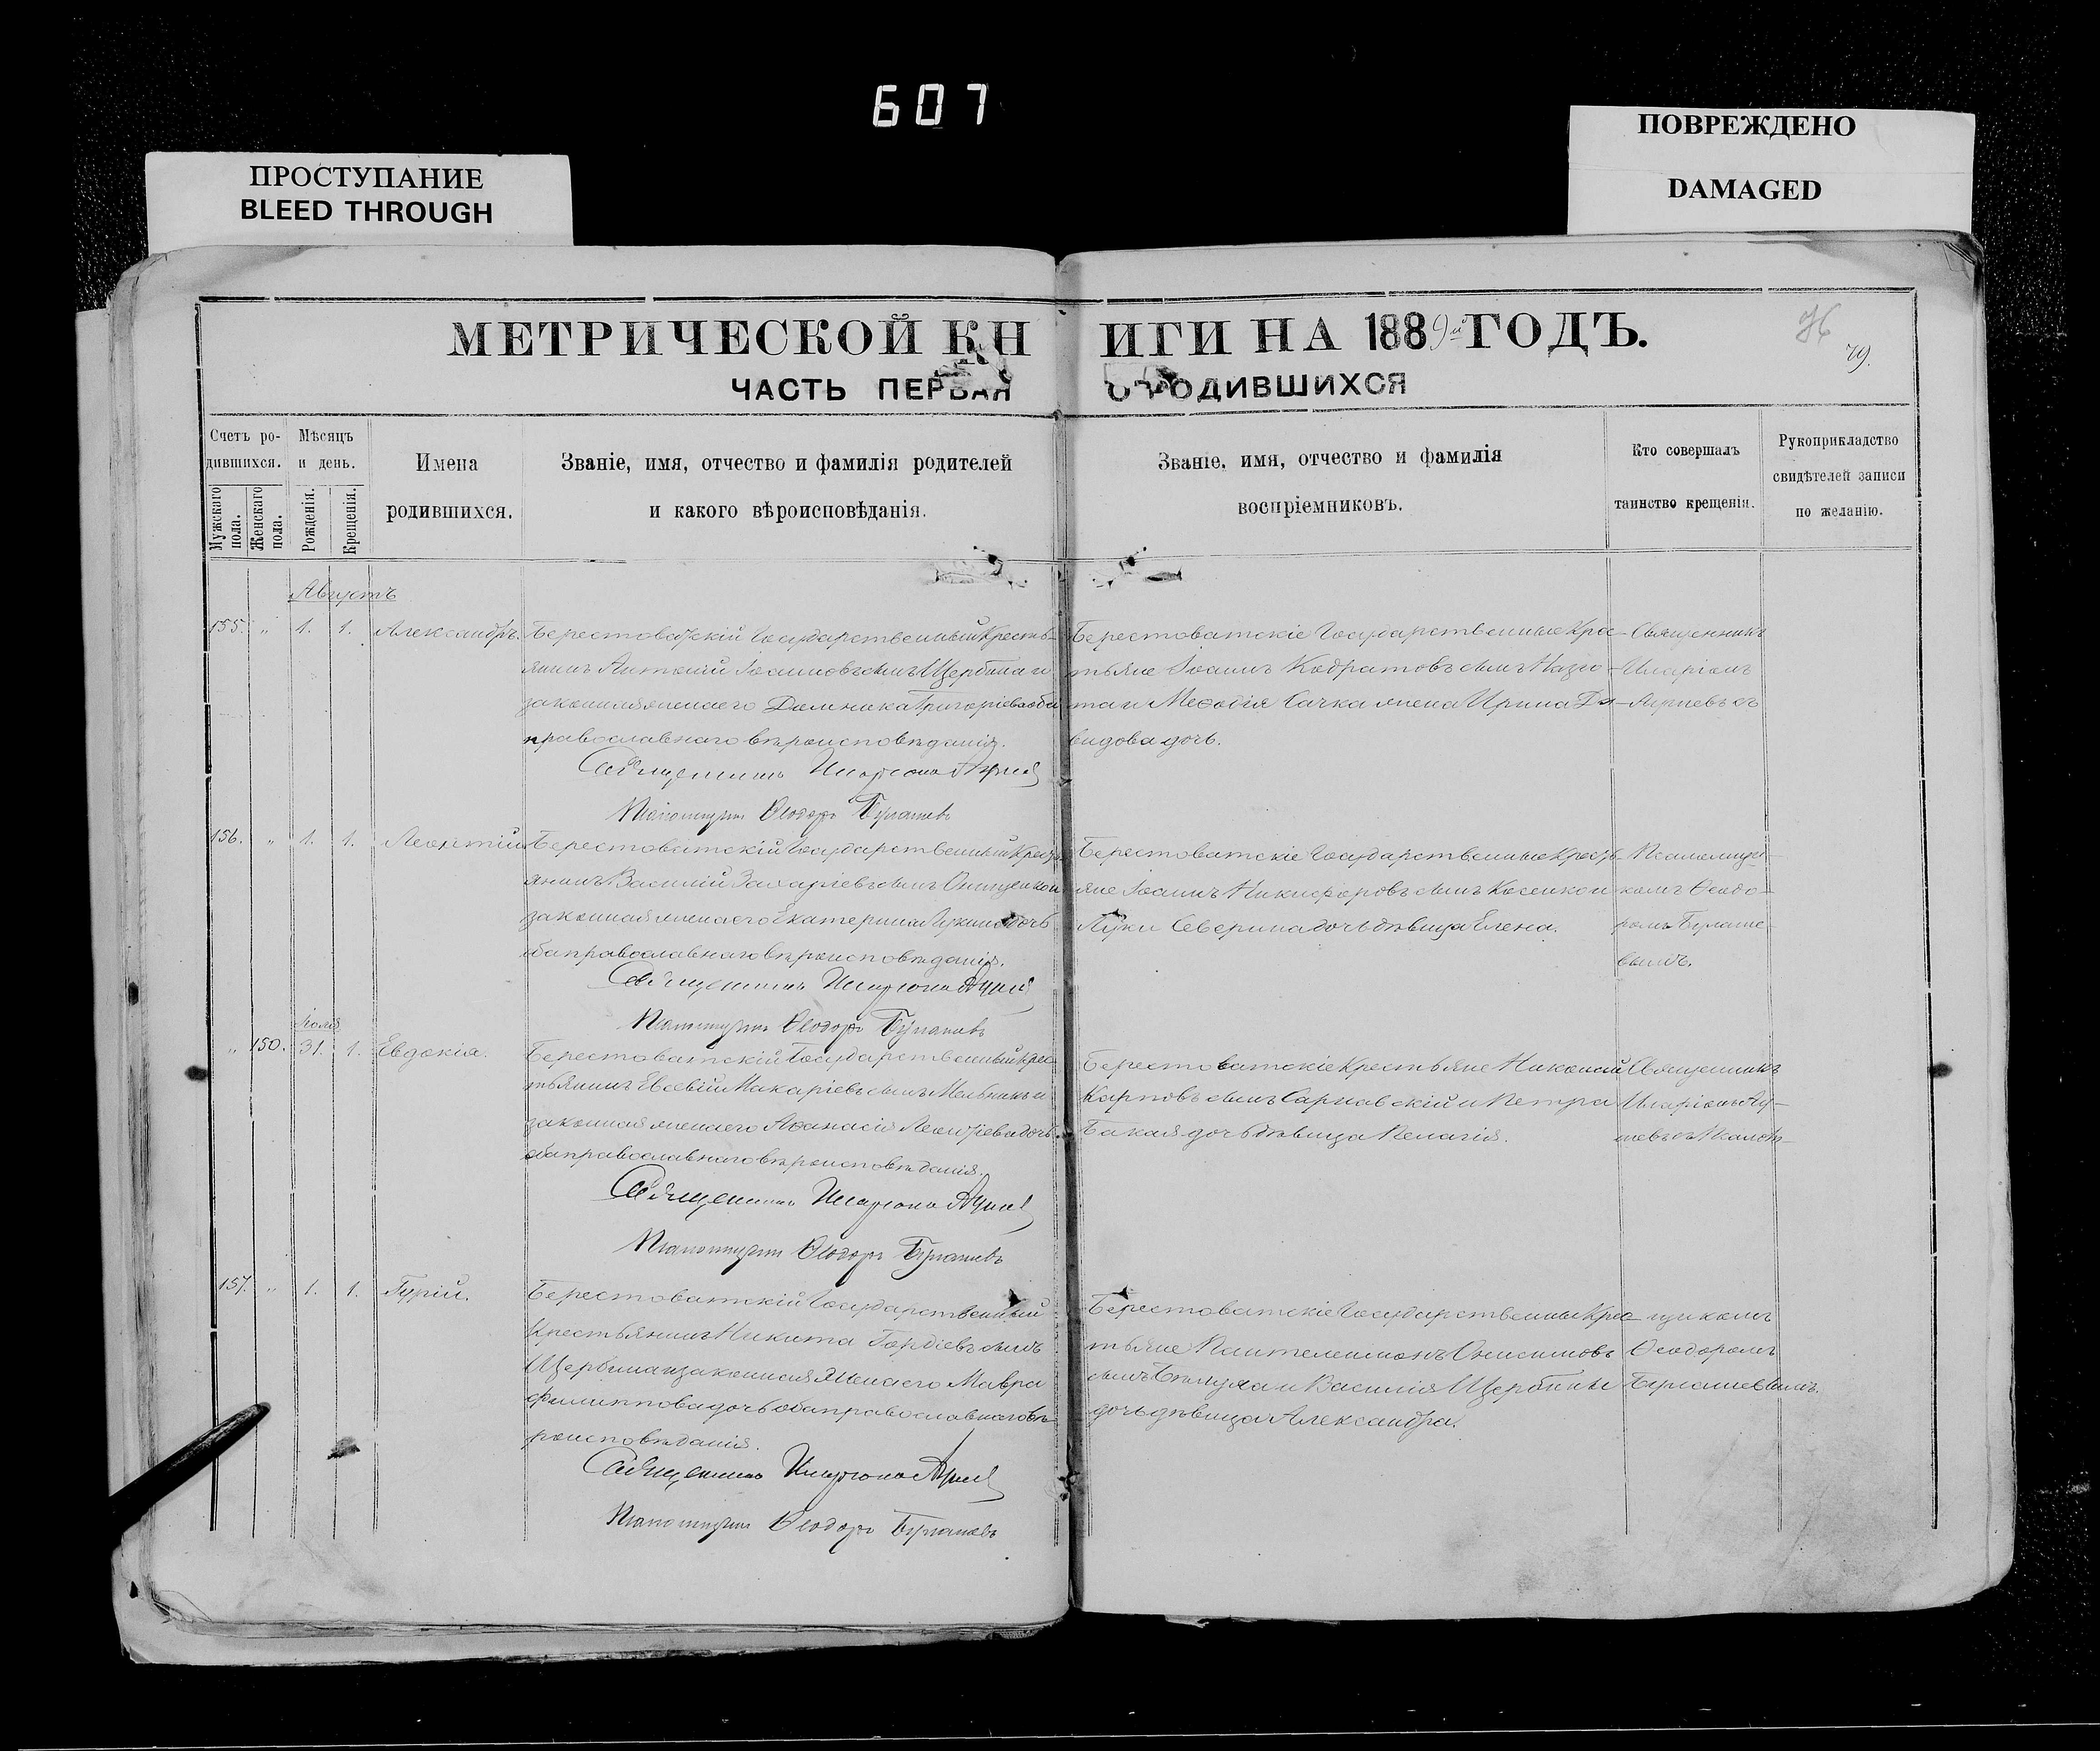 607
ПРОСТУПАНИЕ
BLEED THROUGH
ПОВРЕЖДЕНО
DAMAGED
МЕТРИЧЕСКОЙ КНИГИ НА 1889й ГОДЪ.
76
79.
ЧАСТЬ ПЕРВАЯ О РОДИВШИХСЯ
Счетъ ро-
дившихся.
Мужскаго пола.
Женскаго пола.
Мѣсяцъ
и день.
Рожденія.
Крещенія.
Имена
родившихся.
Званіе, имя, отчество и фамилія родителей
и какого вѣроисповѣданія.
Званіе, имя, отчество и фамилія
воспріемниковъ.
Кто совершалъ
таинство крещенія.
Рукоприкладство
свидѣтелей записи
по желанію.
Августъ
155. " 1. 1. Александръ.
Берестоватскій Государственный Кресть-
янинъ Антоній Іоанновъ сынъ Щербина и
законная жена его Домника Григоріева оба
православнаго вѣроисповѣданія.
Священникъ
Псаломщикъ Ѳеодоръ
Берестоватскіе Государственные Крес-
тьяне Іоаннъ Кодратовъ сынъ
та и Меѳодія Сачка жена Ирина Да-
видова дочь.
Священникъ
Иларіонъ
156. " 1. 1. Леонтій
Берестоватскій Государственный Кресть-
янинъ Василій Захаріевъ сынъ Онищенко и
законная жена его Екатерина Лукина дочь
оба православнаго вѣроисповѣданія.
Священникъ
Псаломщикъ Ѳеодоръ
Берестоватскіе Государственные Кресть-
яне Іоаннъ Никифоровъ сынъ Косенко и
Луки Северина дочь дѣвица Елена.
Псаломщи-
комъ Ѳеодо-
ромъ
вымъ.
Іюля
" 150. 31. 1. Евдокія.
Берестоватскій Государственный Крес-
тьянинъ Евсевій Макаріевъ сынъ Мельникъ и
законная жена его Аѳанасія Леонтіева дочь
оба православнаго вѣроисповѣданія.
Священникъ
Псаломщикъ Ѳеодоръ
Берестоватскіе Крестьяне Николай
Карповъ сынъ Сарнавскій и Петра
Бакая дочь дѣвица Пелагія.
Священникъ
157. " 1. 1. Гурій.
Берестоватскій Государственный
Крестьянинъ Никита Гордіевъ сынъ
Щербина и законная жена его Мавра
Филиппова дочь оба православнаго вѣ-
роисповѣданія.
Священникъ
Псаломщикъ Ѳеодоръ
Берестоватскіе Государственные Крес-
тьяне Пантелеимонъ Онисимовъ
сынъ и Василія Щербины
дочь дѣвица Александра.
щикомъ
Ѳеодоромъ